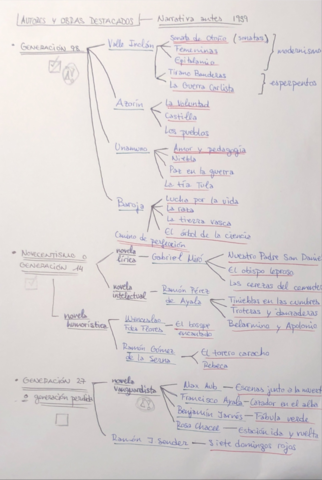 AUTORES Y OBRAS DESTACADOS — Narrativa antes 1939
• GENERACIÓN 98
Valle Inclán
Sonata de Otoño (sonatas)
Femeninas
Epitalamio
modernismo
Tirano Banderas
La Guerra Carlista
esperpentos
Azorín
La voluntad
Castilla
Los pueblos
Unamuno
Amor y pedagogía
Niebla
Paz en la guerra
La tía Tula
Baroja
Lucha por la vida
La raza
La tierra vasca
El árbol de la ciencia
Camino de perfección
• NOVECENTISMO O GENERACIÓN 14
novela lírica
Gabriel Miró
Nuestro Padre San Daniel
El obispo leproso
Las cerezas del cementerio
novela intelectual
Ramón Pérez de Ayala
Tinieblas en las cumbres
Troteras y danzaderas
Belarmino y Apolonio
novela humorística
Wenceslao Fdez Flores
El bosque encantado
Ramón Gómez de la Serna
El torero caracho
Rebeca
• GENERACIÓN 27
generación perdida
novela vanguardista
Max Aub — Escenas junto a la muerte
Francisco Ayala — Cazador en el alba
Benjamín Jarnés — Fábula verde
Rosa Chacel — Estación ida y vuelta
Ramón J Sender — Siete domingos rojos